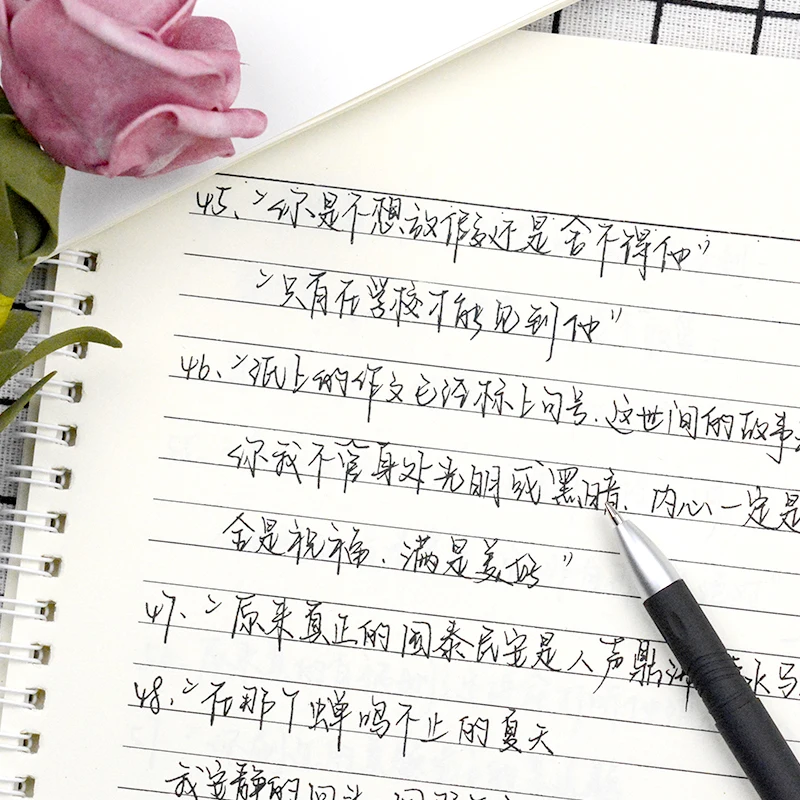 45、“你是不想放假还是舍不得他”
“只有在学校才能见到他”
46、“纸上的作文已经标上句号、这世间的故事
你我不管身处光明或黑暗、内心一定是
全是祝福、满是美好”
47、“原来真正的国泰民安是人声鼎沸 水马
48、“在那个蝉鸣不止的夏天
我安静的回头